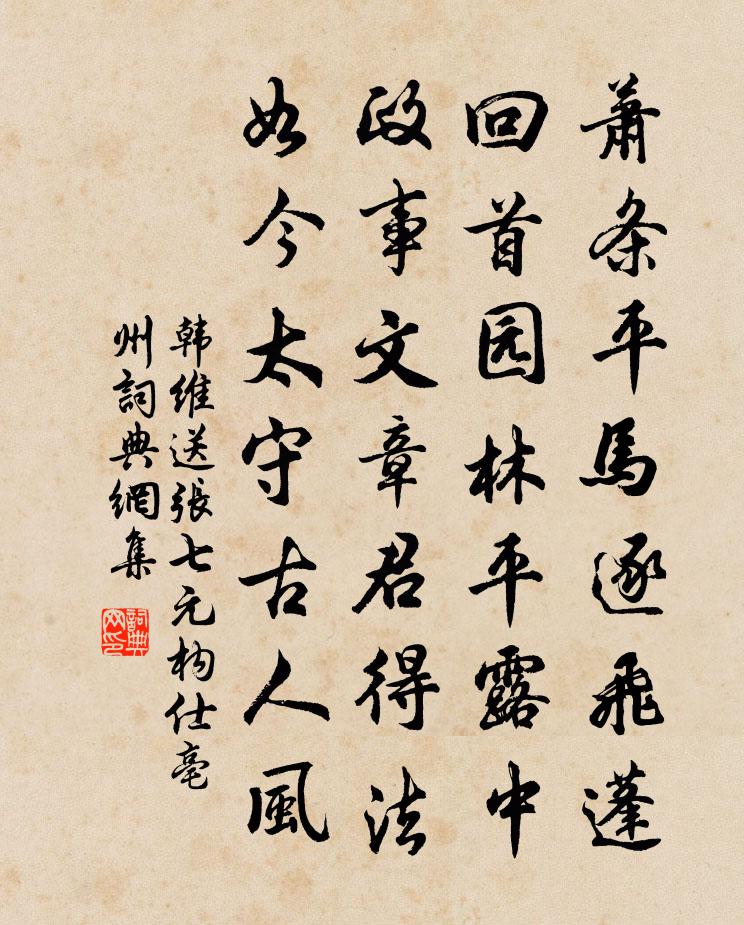 萧条平馬逐飛蓬
回首园林平露中
政事文章君得法
如今太守古人風
韩維送張七元构仕亳
州詞典網集
詞典网印